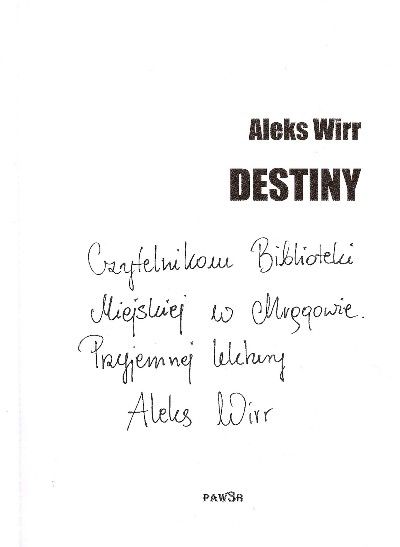 Aleks Wirr
DESTINY
Czytelnikom Biblioteki
Miejskiej w Mrągowie.
Przyjemnej lektury
Aleks Wirr